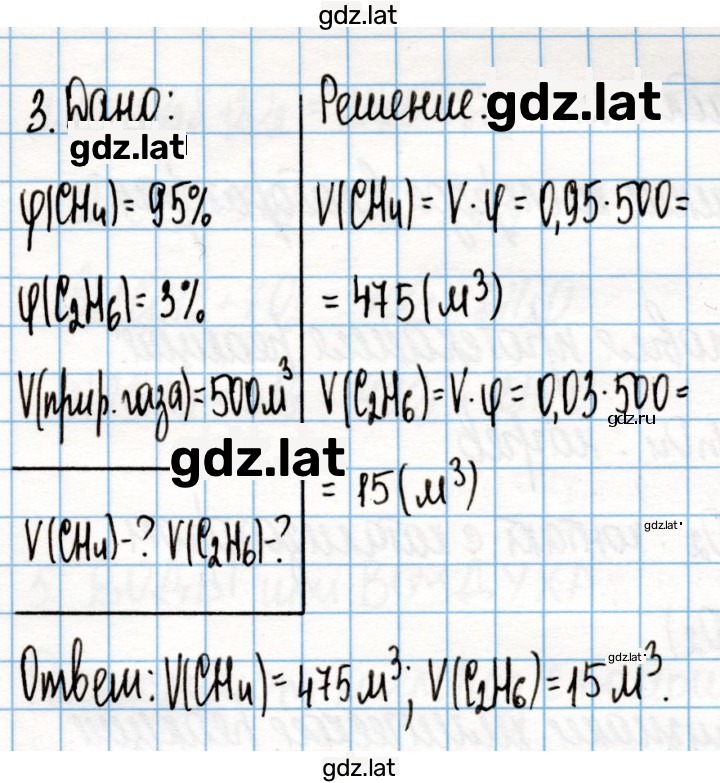 gdz.lat
3. Дано:
gdz.lat
φ(CH₄) = 95%
φ(C₂H₆) = 3%
V(прир. газа) = 500 м³
V(CH₄) - ? V(C₂H₆) - ?
Решение:
gdz.lat
V(CH₄) = V · φ = 0,95 · 500 =
= 475 (м³)
V(C₂H₆) = V · φ = 0,03 · 500 =
gdz.ru
gdz.lat
= 15 (м³)
gdz.lat
gdz.lat
Ответ: V(CH₄) = 475 м³; V(C₂H₆) = 15 м³.
gdz.lat